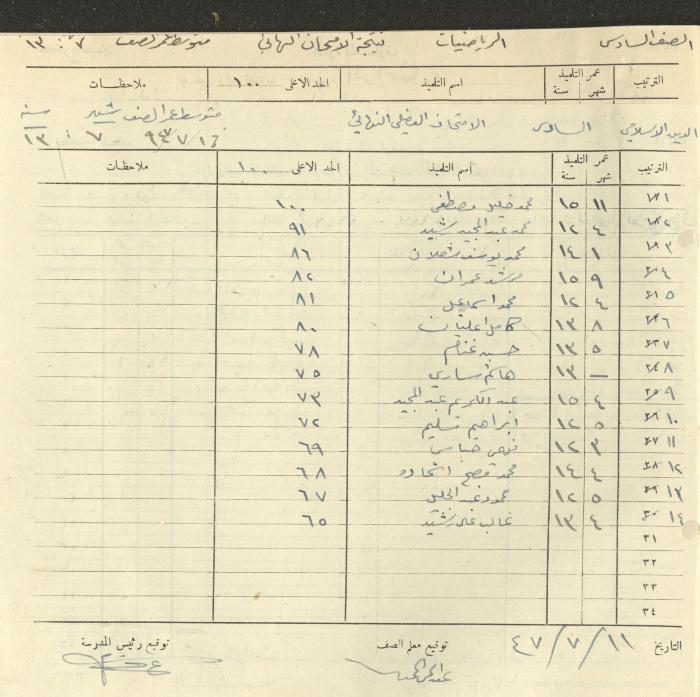 الصف السادس الرياضيات نتيجة الامتحان النهائي متوسط عمر الصف ٧ : ١٣
الترتيب عمر التلميذ شهر سنة اسم التلميذ الحد الاعلى ١٠٠ ملاحظات
الدين الاسلامي السادس الامتحان الفصلي النهائي متوسط عمر الصف شهر سنة
٧ : ١٣
الترتيب عمر التلميذ شهر سنة اسم التلميذ الحد الاعلى ١٠٠ ملاحظات
١ ١١ ١٥ محمد خليل مصطفى ١٠٠
٢ ٤ ١٢ محمد عبد المجيد رشيد ٩١
٣ ١ ١٤ محمد يوسف شعلان ٨٦
٤ ٩ ١٥ مرشد عمران ٨٢
٥ ٤ ١٢ محمود اسماعيل ٨١
٦ ٨ ١٣ كامل عليان ٨٠
٧ ٥ ١٣ حسين غنام ٧٨
٨ — ١٣ هاشم ساري ٧٥
٩ ٤ ١٥ عبد الكريم عبد المجيد ٧٣
١٠ ٥ ١٢ ابراهيم تسليم ٧٢
١١ ٣ ١٢ فهمي عباس ٦٩
١٢ ٤ ١٤ محمد ٦٨
١٣ ٥ ١٢ محمود عبد الجليل ٦٧
١٤ ٤ ١٣ غالب علي رشيد ٦٥
٣١
٣٢
٣٣
٣٤
التاريخ ١١/٧/٤٧ توقيع معلم الصف توقيع رئيس المدرسة